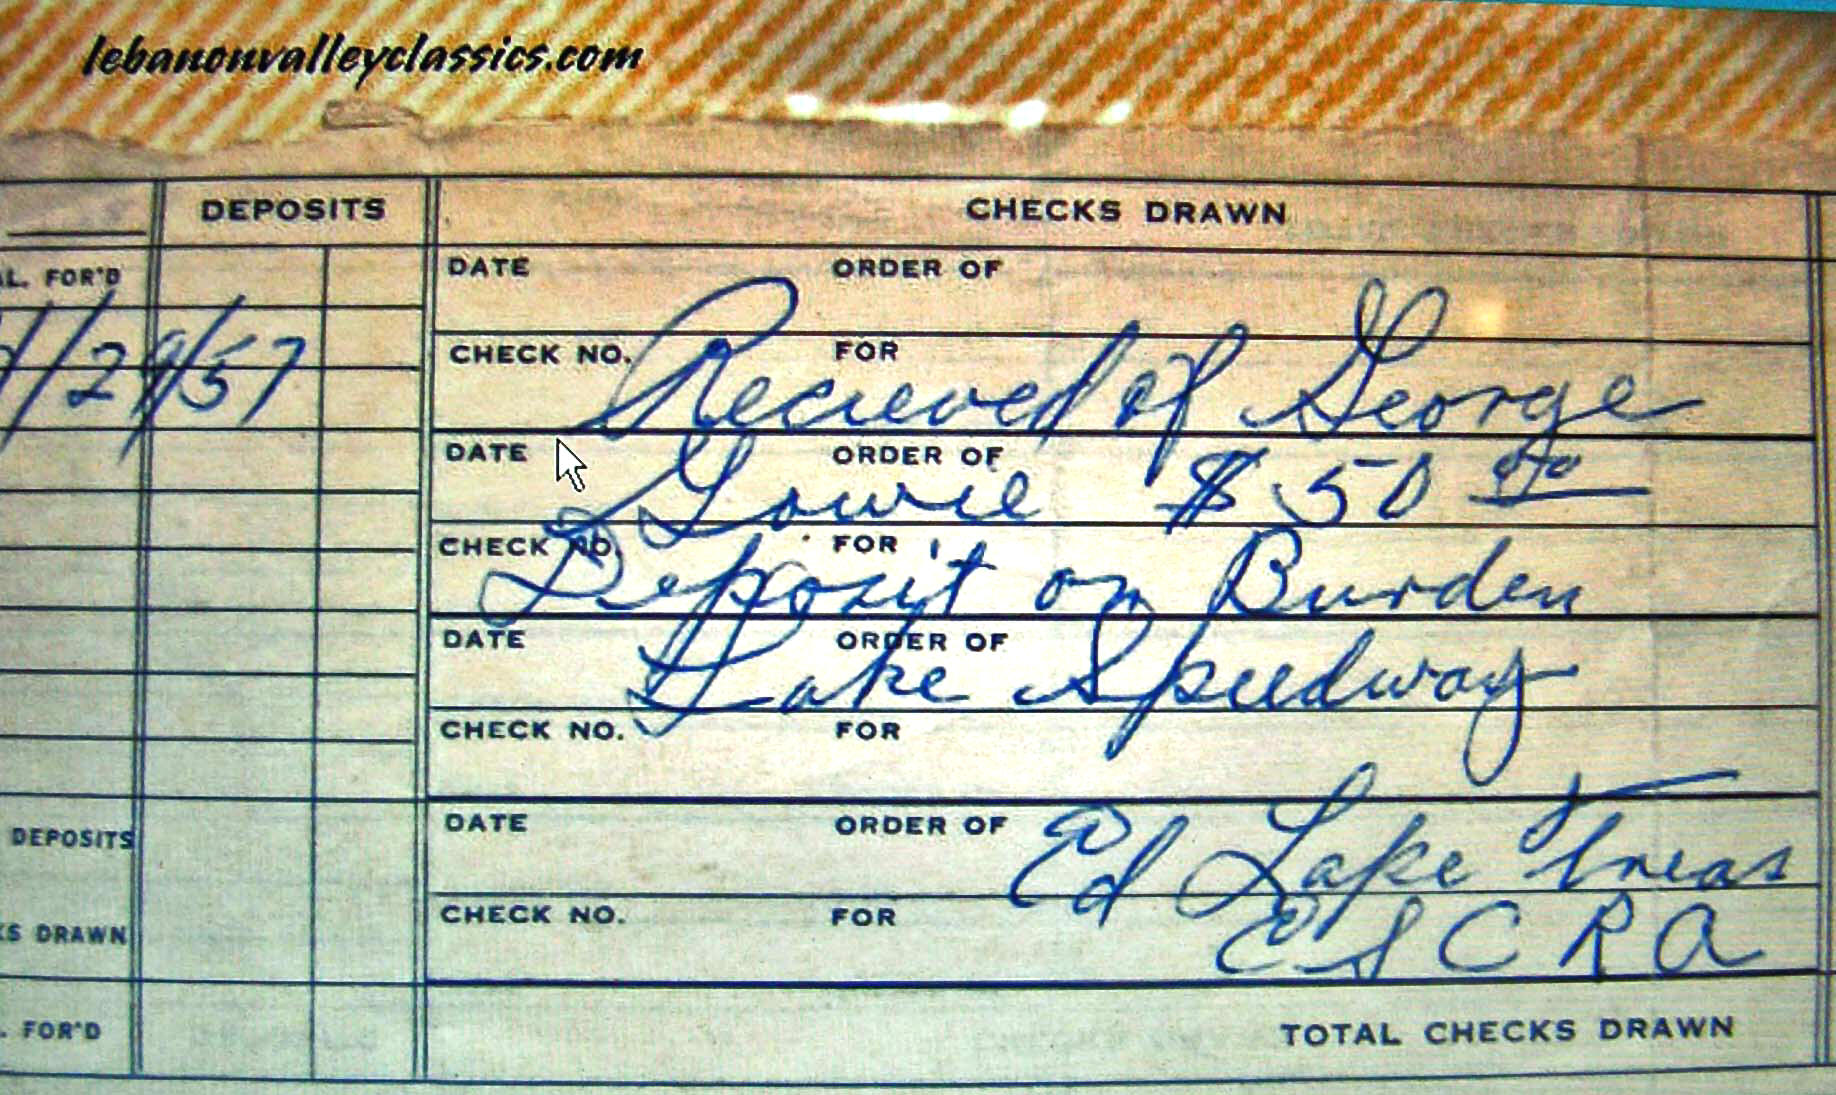 lebanonvalleyclassics.com
DEPOSITS CHECKS DRAWN
AL. FOR'D DATE ORDER OF
/29/57 CHECK NO. FOR
Recieved of George
DATE ORDER OF
Gowie $50 00
CHECK NO. FOR
Deposit on Burden
DATE ORDER OF
Lake Speedway
CHECK NO. FOR
DEPOSITS DATE ORDER OF Ed Lake Treas
KS DRAWN CHECK NO. FOR E S C R A
. FOR'D TOTAL CHECKS DRAWN